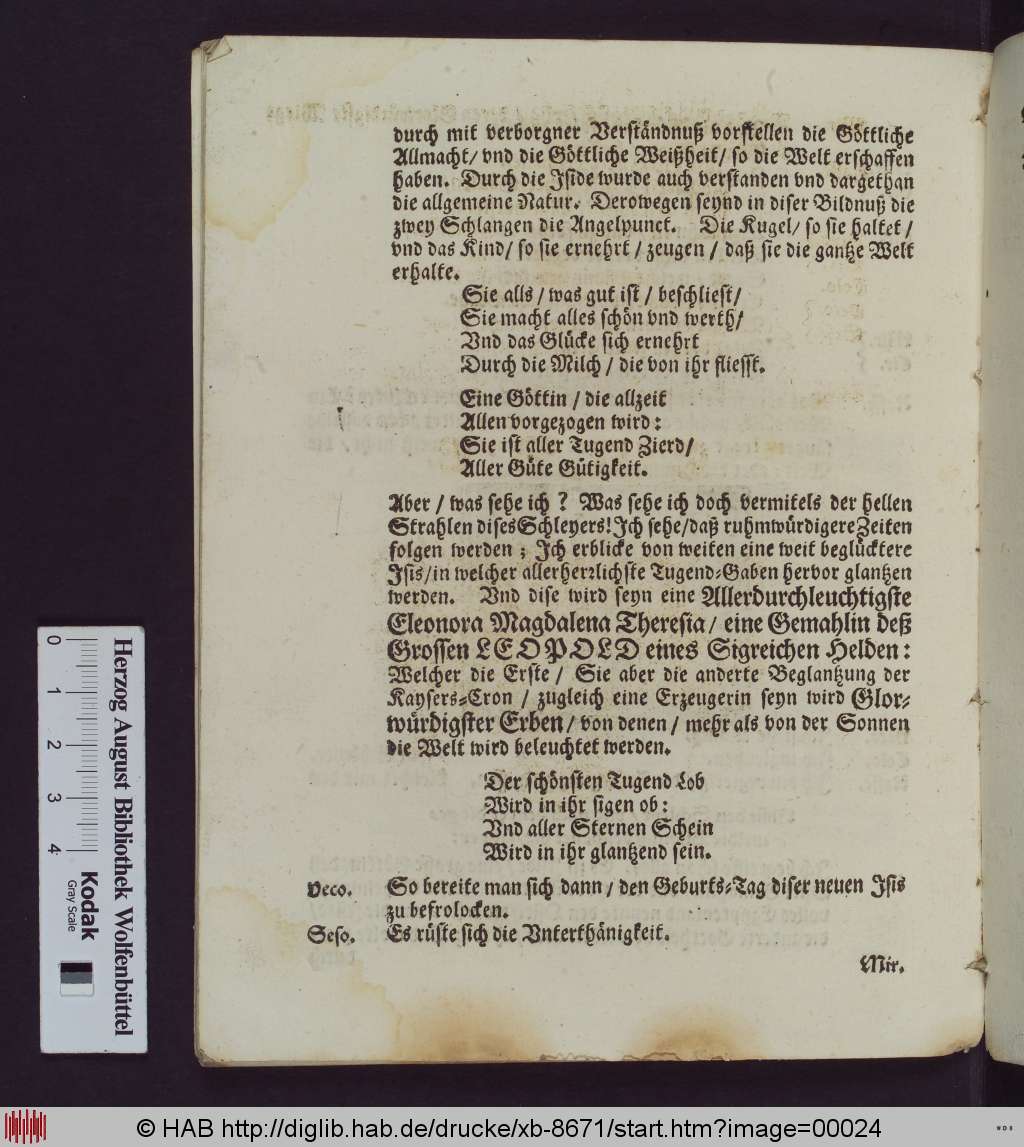 durch mit verborgner Verständnuß vorstellen die Göttliche
Allmacht/ vnd die Göttliche Weißheit/ so die Welt erschaffen
haben. Durch die Iside wurde auch verstanden vnd dargethan
die allgemeine Natur. Derowegen seynd in diser Bildnuß die
zwey Schlangen die Angelpunct. Die Kugel/ so sie haltet /
vnd das Kind/ so sie ernehrt / zeugen / daß sie die gantze Welt
erhalte.
Sie alls / was gut ist / beschliest/
Sie macht alles schön vnd werth/
Vnd das Glücke sich ernehrt
Durch die Milch / die von ihr fliesst.
Eine Göttin / die allzeit
Allen vorgezogen wird:
Sie ist aller Tugend Zierd/
Aller Güte Gütigkeit.
Aber / was sehe ich ? Was sehe ich doch vermitels der hellen
Strahlen dises Schleyers! Ich sehe/ daß ruhmwürdigere Zeiten
folgen werden ; Ich erblicke von weiten eine weit beglücktere
Isis/ in welcher allerherrlichste Tugend-Gaben hervor glantzen
werden. Vnd dise wird seyn eine Allerdurchleuchtigste
Eleonora Magdalena Theresia / eine Gemahlin deß
Grossen LEOPOLD eines Sigreichen Helden:
Welcher die Erste / Sie aber die anderte Beglantzung der
Kaysers-Cron / zugleich eine Erzeugerin seyn wird Glor-
würdigster Erben / von denen / mehr als von der Sonnen
die Welt wird beleuchtet werden.
Der schönsten Tugend Lob
Wird in ihr sigen ob:
Vnd aller Sternen Schein
Wird in ihr glantzend sein.
Veco. So bereite man sich dann / den Geburts-Tag diser neuen Isis
zu befrolocken.
Seso. Es rüste sich die Vnterthänigkeit.
Mir.
0 1 2 3 4
Herzog August Bibliothek Wolfenbüttel
Kodak
Gray Scale
© HAB http://diglib.hab.de/drucke/xb-8671/start.htm?image=00024